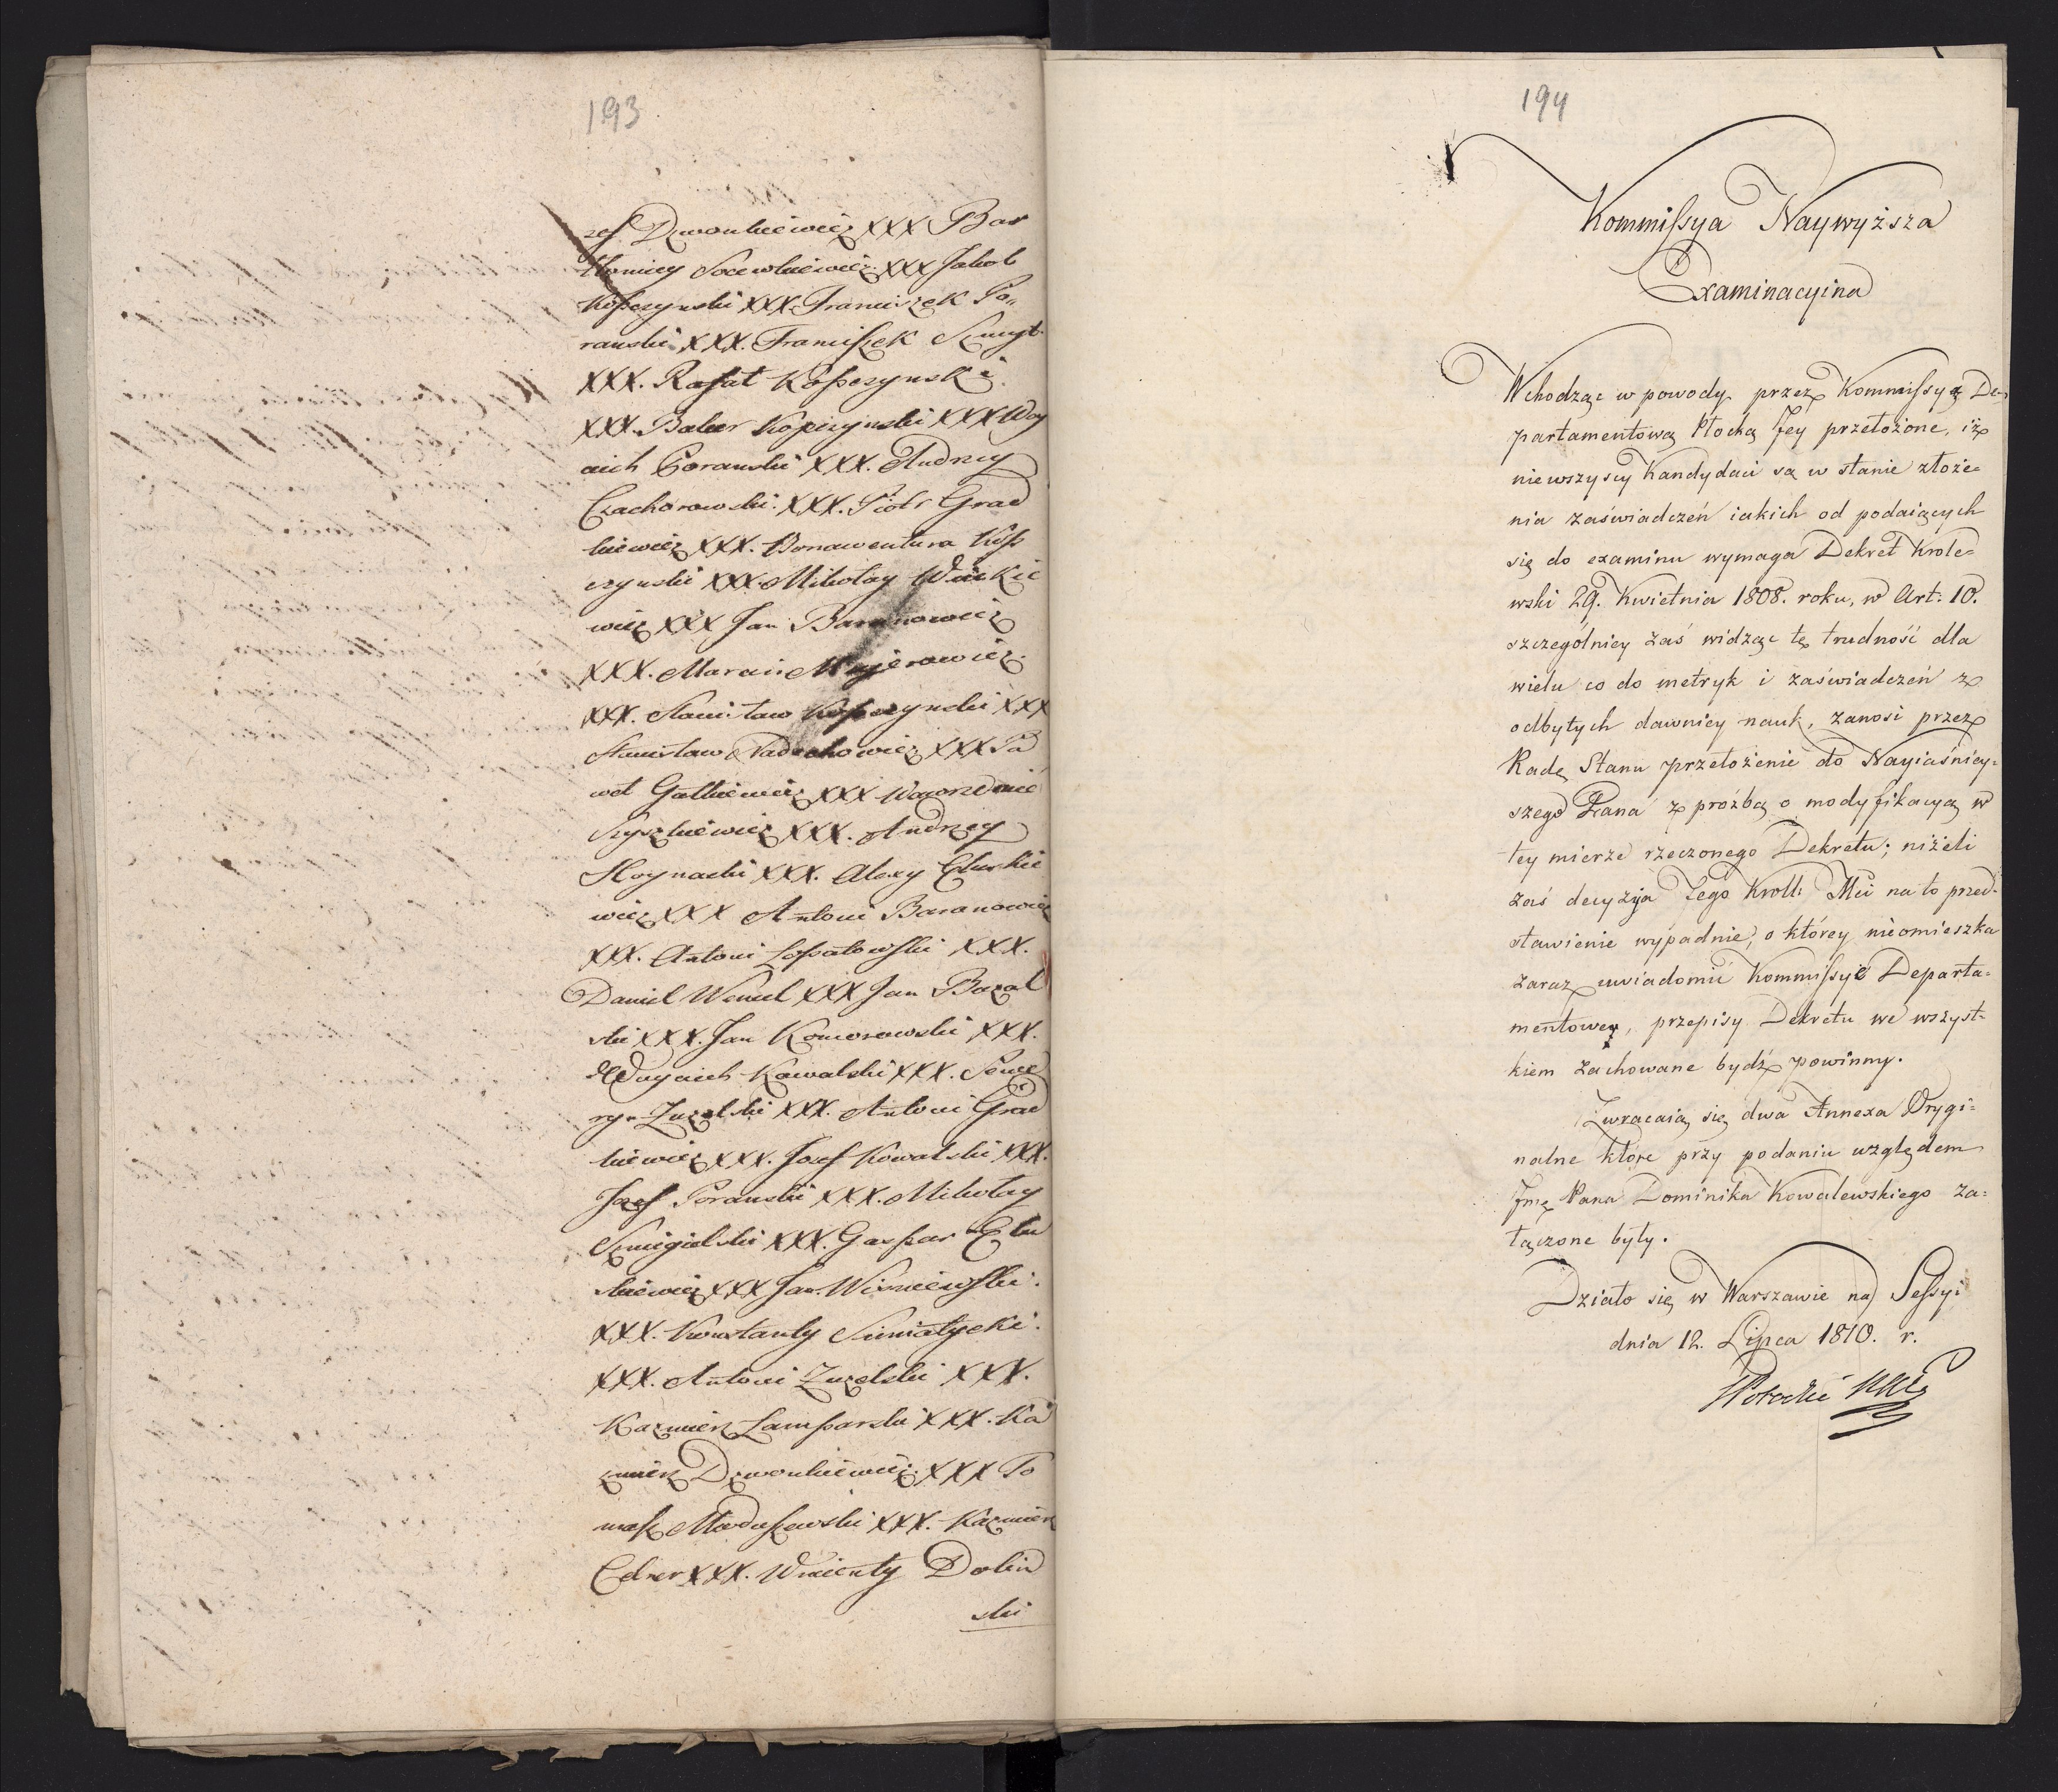 193
zef Dzwonkiewicz XXX Bar
tłomiey Socewkiewicz XXX Jakob
Kopczynski XXX. Franciszek Po„
ranski XXX. Franciszek Szmyt
XXX. Rafał Kopczynski
XXX. Balcer Kopczynski XXX Woy
ciech Poranski XXX. Andrzey
Czachorowski. XXX. Piotr Grad
kiewicz XXX. Bonawentura Kop
czynski XXX. Mikołay
wicz XXX Jan Baranowicz
XXX. Marcin Majerowicz.
XXX. Stanisław Kopczynski XXX
Stanisław Radochowicz XXX Pa
weł Gutkiewicz XXX Wawrzeniec
Szyszkiewicz XXX. Andrzey
Choynacki XXX. Alexy
wicz XXX Antoni Baranowicz
XXX. Antoni Łopatowski XXX.
Daniel Wencel XXX Jan Bazal
ski XXX. Jan Komorowski XXX.
Woyciech Kowalski XXX. Sewe
ryn Zuzelski XXX. Antoni Grad
kiewicz XXX. Josef Kowalski XXX.
Jozef Poranski XXX. Mikołay
Szmigielski XXX. Gaspar
skiewicz XXX Jan Wisniewski.
XXX. Konstanty Siemiatycki.
XXX. Antoni Zuzelski XXX.
Kazmierz Lamparski XXX. Ka
zmierz Dzwonkiewicz XXX To
masz Mardaszewski XXX. Kazmierz
Celner XXX. Wincenty Dolin
ski
194
Kommissya Naywyższa
Examinacyina
Wchodząc w powody przez Kommissyą De=
partamentową Płocką Jey przełożone, iż
niewszyscy Kandydaci są w stanie złoże=
nia zaświadczeń iakich od podaiących
się do examinu wymaga Dekret Krole=
wski 29. Kwietnia 1808. roku, w Art: 10.
szczególniey zaś widząc tę trudność dla
wielu co do metryk i zaświadczeń z
odbytych dawniey nauk, zanosi przez
Radę Stanu przełożenie do Nayiaśniey=
szego Pana z proźbą o modyfikacyą w
tey mierze rzeczonego Dekretu; niżeli
zaś decyzja Jego Kroll: Mci na to przed=
stawienie wypadnie, o którey nieomieszka
zaraz uwiadomić Kommissyę Departa=
mentową, przepisy Dekretu we wszyst=
kiem zachowane bydź powinny.
Zwracaią się dwa Annexa Orygi=
nalne które przy podaniu względem
Jmę Pana Dominika Kowalewskiego za=
łączone były.
Działo się w Warszawie na Sessyi
dnia 12. Lipca 1810. r.
Potocki